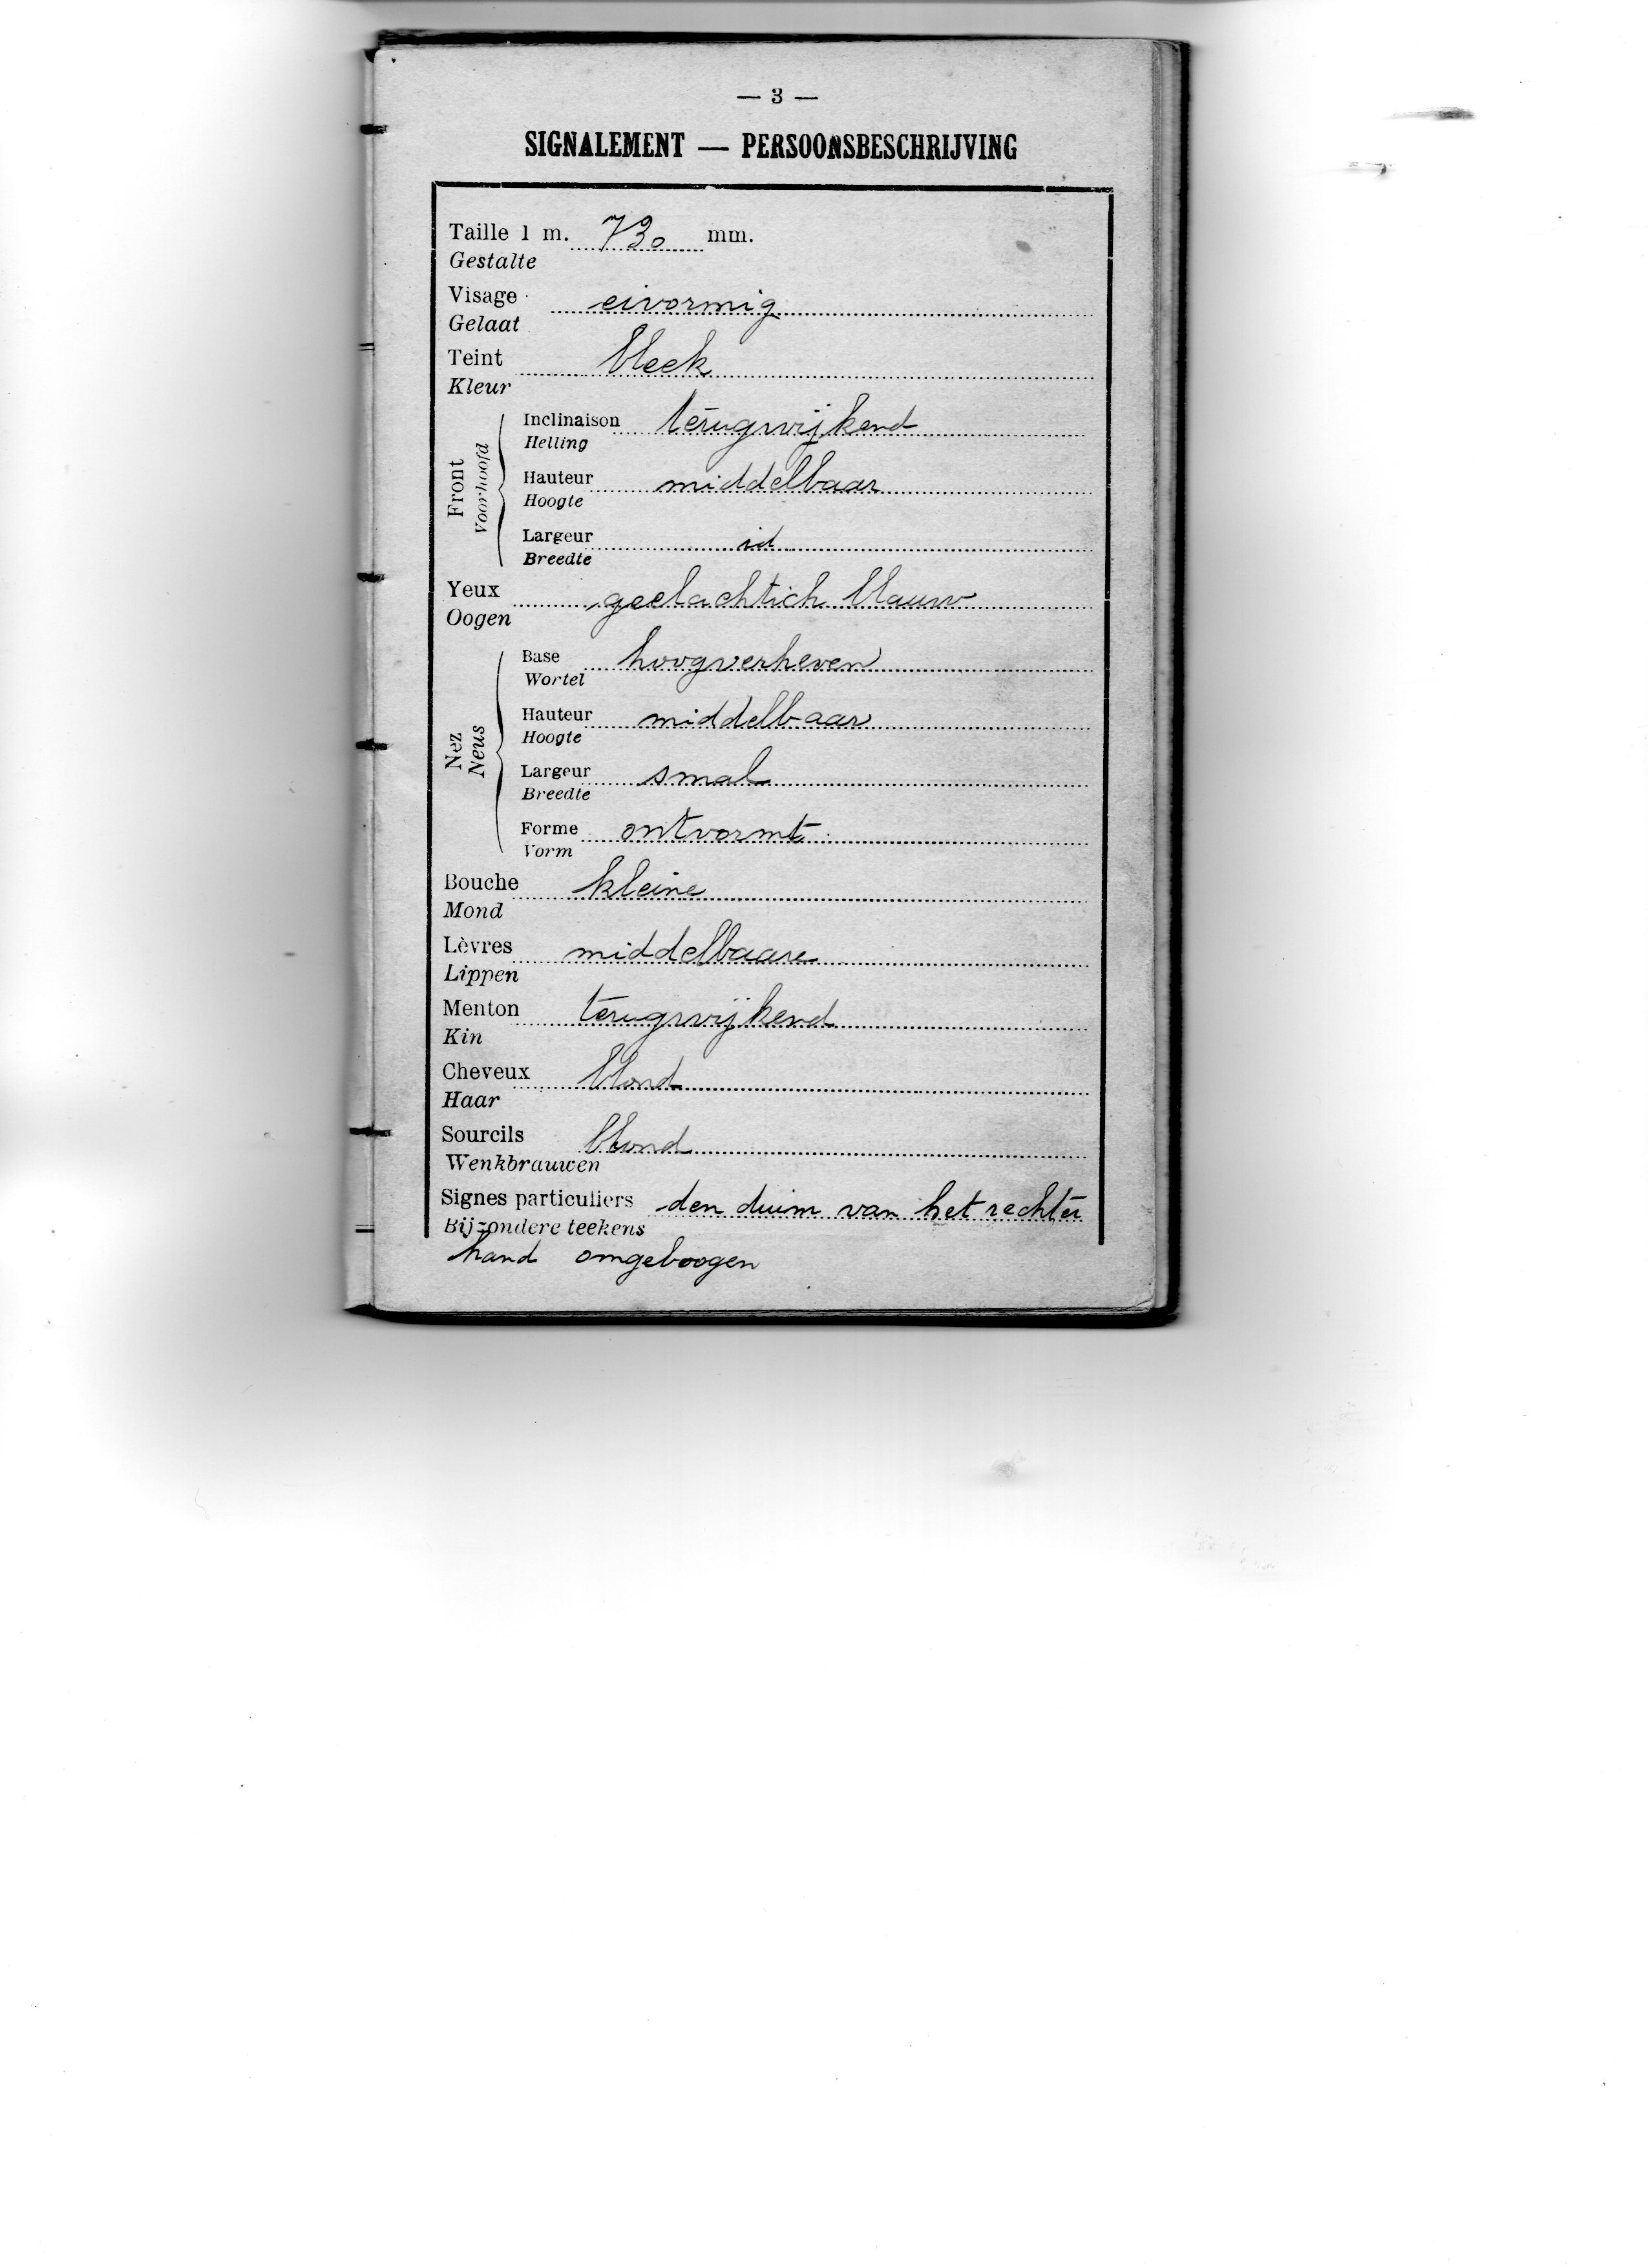 — 3 —
SIGNALEMENT — PERSOONSBESCHRIJVING
Taille 1 m. 730 mm.
Gestalte
Visage eivormig
Gelaat
Teint bleek
Kleur
Front
Voorhoofd
Inclinaison terugwijkend
Helling
Hauteur middelbaar
Hoogte
Largeur id
Breedte
Yeux geelachtich blauw
Oogen
Nez
Neus
Base hoogverheven
Wortel
Hauteur middelbaar
Hoogte
Largeur smal
Breedte
Forme ontvormt
Vorm
Bouche kleine
Mond
Lèvres middelbaare
Lippen
Menton terugwijkend
Kin
Cheveux blond
Haar
Sourcils blond
Wenkbrauwen
Signes particuliers den duim van het rechter
Bijzondere teekens
hand omgeboogen